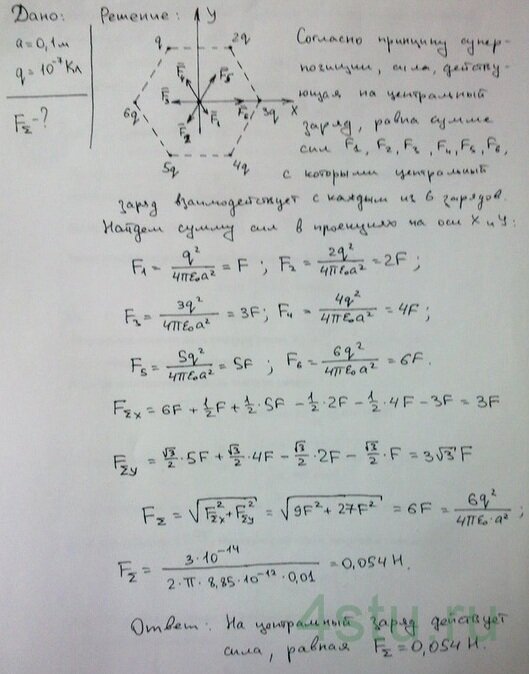 Дано:
Решение:
a = 0,1 м
q = 10⁻⁷ Кл
F_Σ - ?
Y
q
2q
F₄
F₅
6q
F₃
F₆
3q
X
F₂
F₁
5q
4q
Согласно принципу супер-
позиции, сила, действу-
ющая на центральный
заряд, равна сумме
сил F₁, F₂, F₃, F₄, F₅, F₆,
с которыми центральный
заряд взаимодействует с каждым из 6 зарядов.
Найдем сумму сил в проекциях на оси X и Y:
F₁ = q²/4πε₀a² = F ; F₂ = 2q²/4πε₀a² = 2F ;
F₃ = 3q²/4πε₀a² = 3F ; F₄ = 4q²/4πε₀a² = 4F ;
F₅ = 5q²/4πε₀a² = 5F ; F₆ = 6q²/4πε₀a² = 6F .
F_Σx = 6F + 1/2 F + 1/2 · 5F − 1/2 · 2F − 1/2 · 4F − 3F = 3F
F_Σy = √3/2 · 5F + √3/2 · 4F − √3/2 · 2F − √3/2 · F = 3√3 F
F_Σ = √(F²_Σx + F²_Σy) = √(9F² + 27F²) = 6F = 6q²/4πε₀·a² ;
F_Σ = 3·10⁻¹⁴/2·π·8,85·10⁻¹²·0,01 = 0,054 Н.
Ответ: На центральный заряд действует
сила, равная F_Σ = 0,054 Н.
4stu.ru